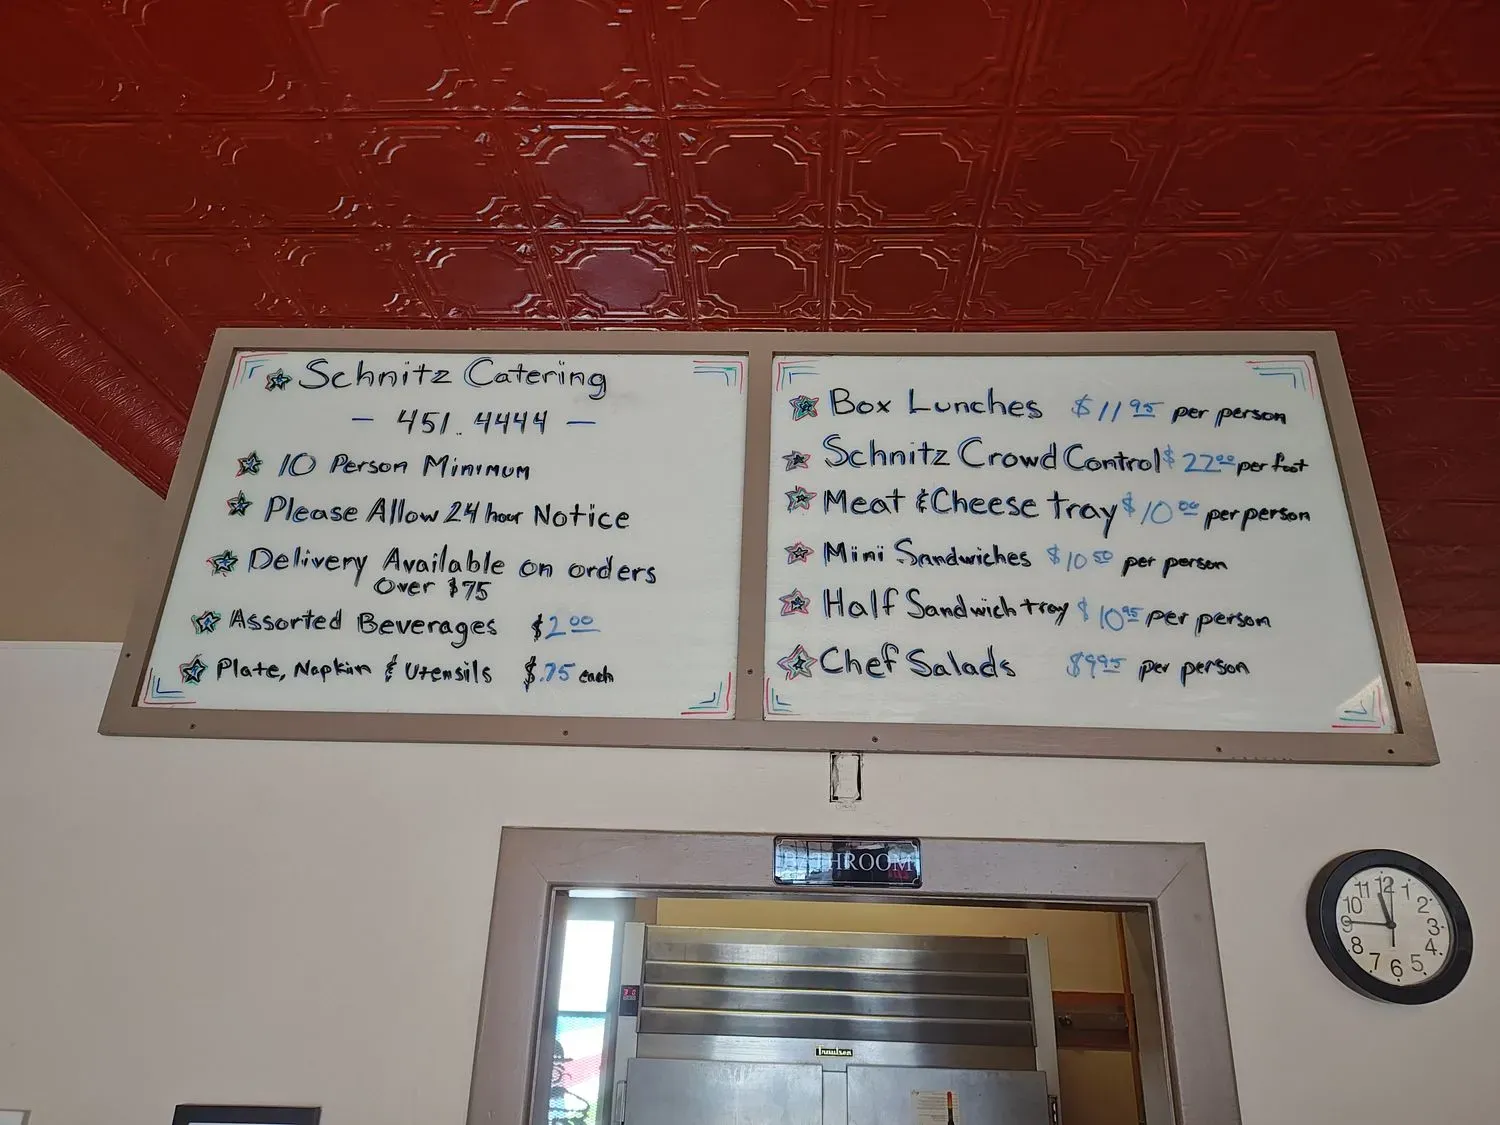 Schnitz Catering
- 451.4444 -
10 Person Minimum
Please Allow 24 hour Notice
Delivery Available on orders
Over $75
Assorted Beverages $2.00
Plate, Napkin & Utensils $.75 each
Box Lunches $11.95 per person
Schnitz Crowd Control $22.00 per foot
Meat & Cheese tray $10.00 per person
Mini Sandwiches $10.50 per person
Half Sandwich tray $10.95 per person
Chef Salads $9.95 per person
BATHROOM
11 12 1
10 2
9 3
8 4
7 6 5
Traulsen